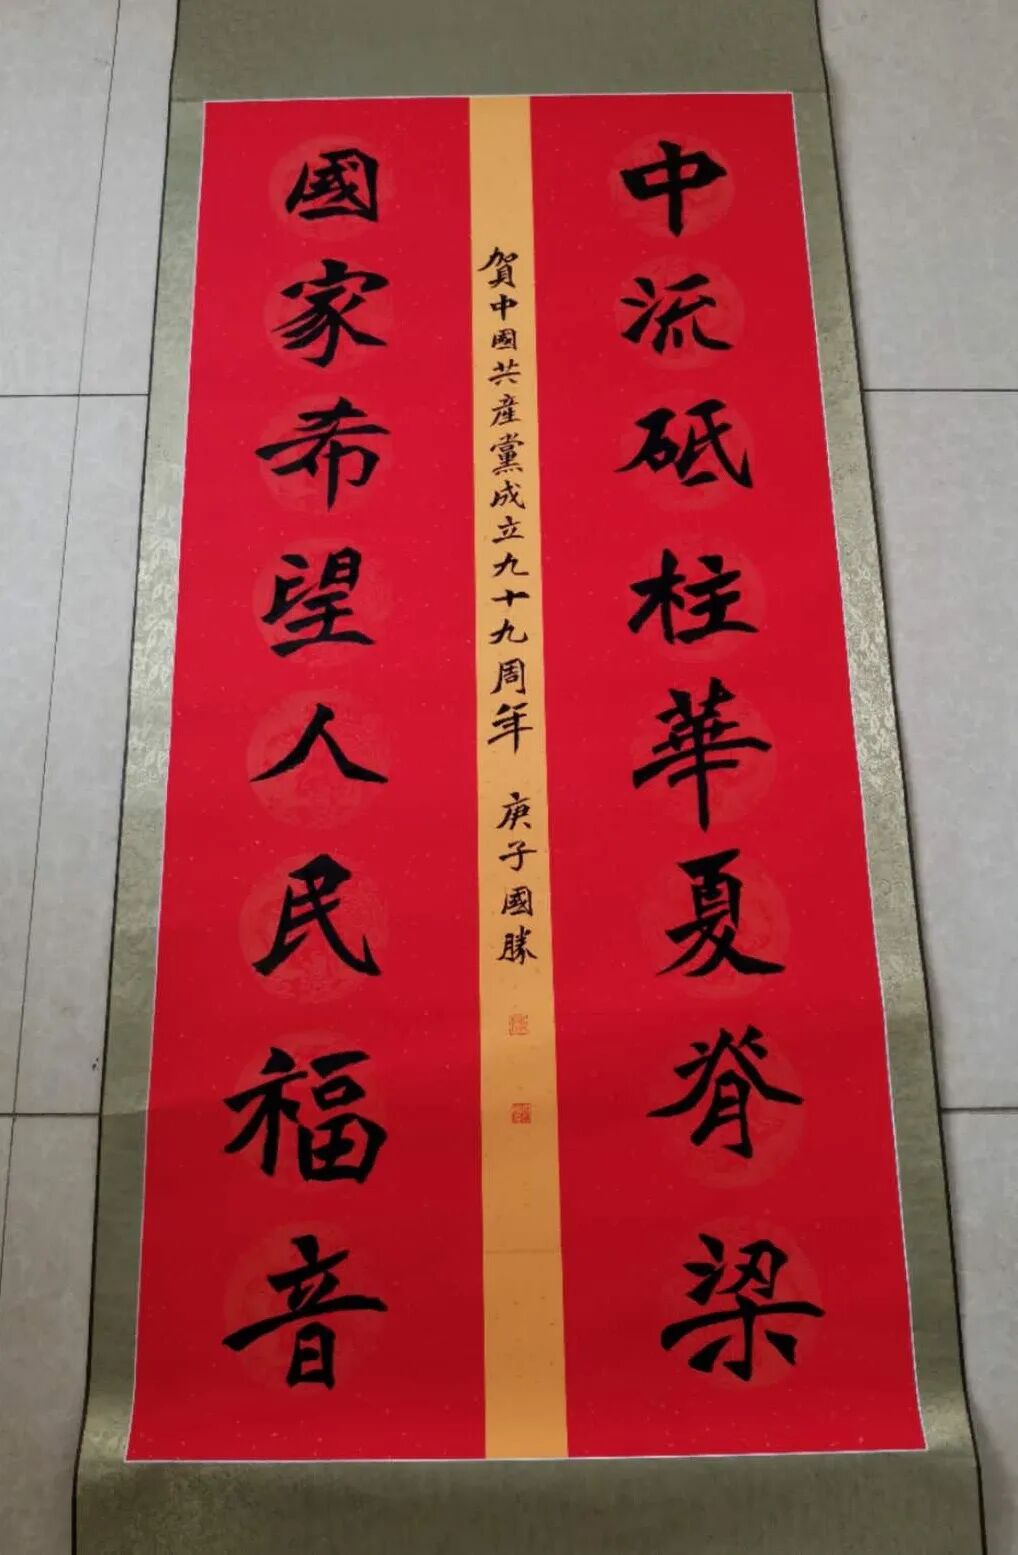 中流砥柱華夏脊梁
賀中國共産黨成立九十九周年 庚子國勝
國家希望人民福音